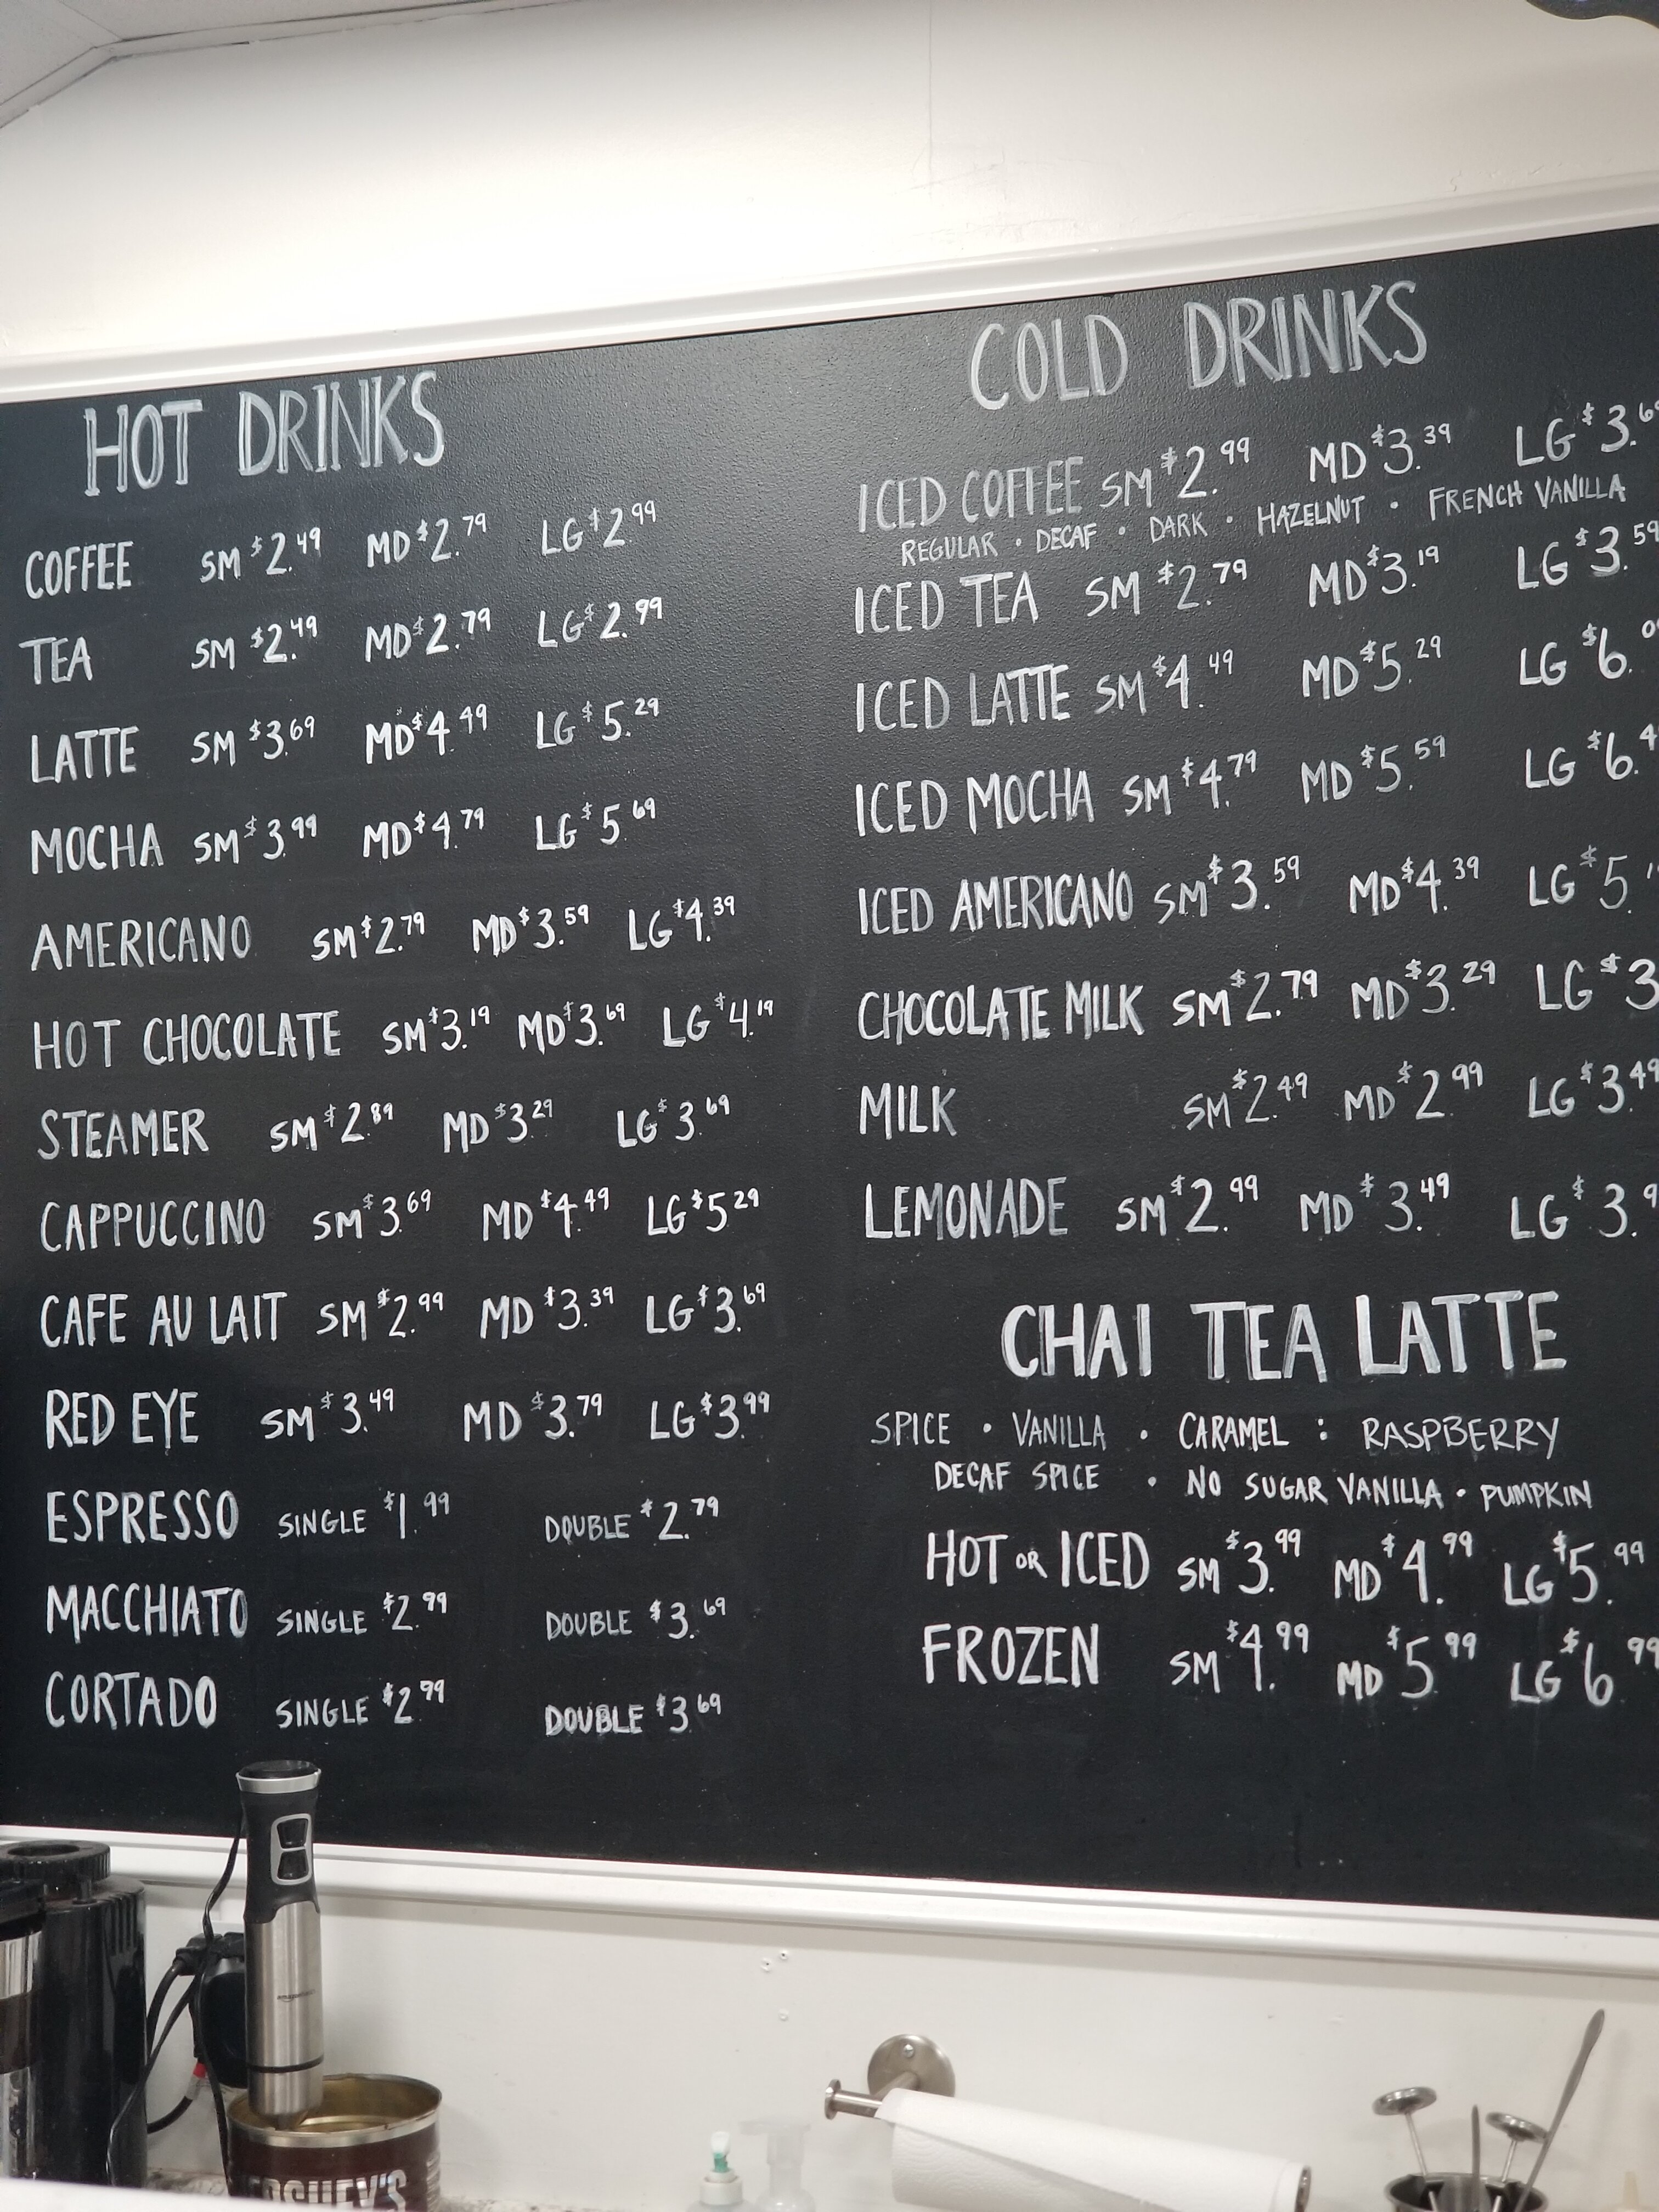 HOT DRINKS
COFFEE SM $2.49 MD $2.79 LG $2.99
TEA SM $2.49 MD $2.79 LG $2.99
LATTE SM $3.69 MD $4.49 LG $5.29
MOCHA SM $3.99 MD $4.79 LG $5.69
AMERICANO SM $2.79 MD $3.59 LG $4.39
HOT CHOCOLATE SM $3.19 MD $3.69 LG $4.19
STEAMER SM $2.89 MD $3.29 LG $3.69
CAPPUCCINO SM $3.69 MD $4.49 LG $5.29
CAFE AU LAIT SM $2.99 MD $3.39 LG $3.69
RED EYE SM $3.49 MD $3.79 LG $3.99
ESPRESSO SINGLE $1.99 DOUBLE $2.79
MACCHIATO SINGLE $2.99 DOUBLE $3.69
CORTADO SINGLE $2.99 DOUBLE $3.69
COLD DRINKS
ICED COFFEE SM $2.99 MD $3.39 LG $3.6
REGULAR • DECAF • DARK • HAZELNUT • FRENCH VANILLA
ICED TEA SM $2.79 MD $3.19 LG $3.59
ICED LATTE SM $4.49 MD $5.29 LG $6.0
ICED MOCHA SM $4.79 MD $5.59 LG $6.4
ICED AMERICANO SM $3.59 MD $4.39 LG $5.1
CHOCOLATE MILK SM $2.79 MD $3.29 LG $3
MILK SM $2.49 MD $2.99 LG $3.49
LEMONADE SM $2.99 MD $3.49 LG $3.9
CHAI TEA LATTE
SPICE • VANILLA • CARAMEL : RASPBERRY
DECAF SPICE • NO SUGAR VANILLA • PUMPKIN
HOT OR ICED SM $3.99 MD $4.99 LG $5.99
FROZEN SM $4.99 MD $5.99 LG $6.99
HERSHEY'S